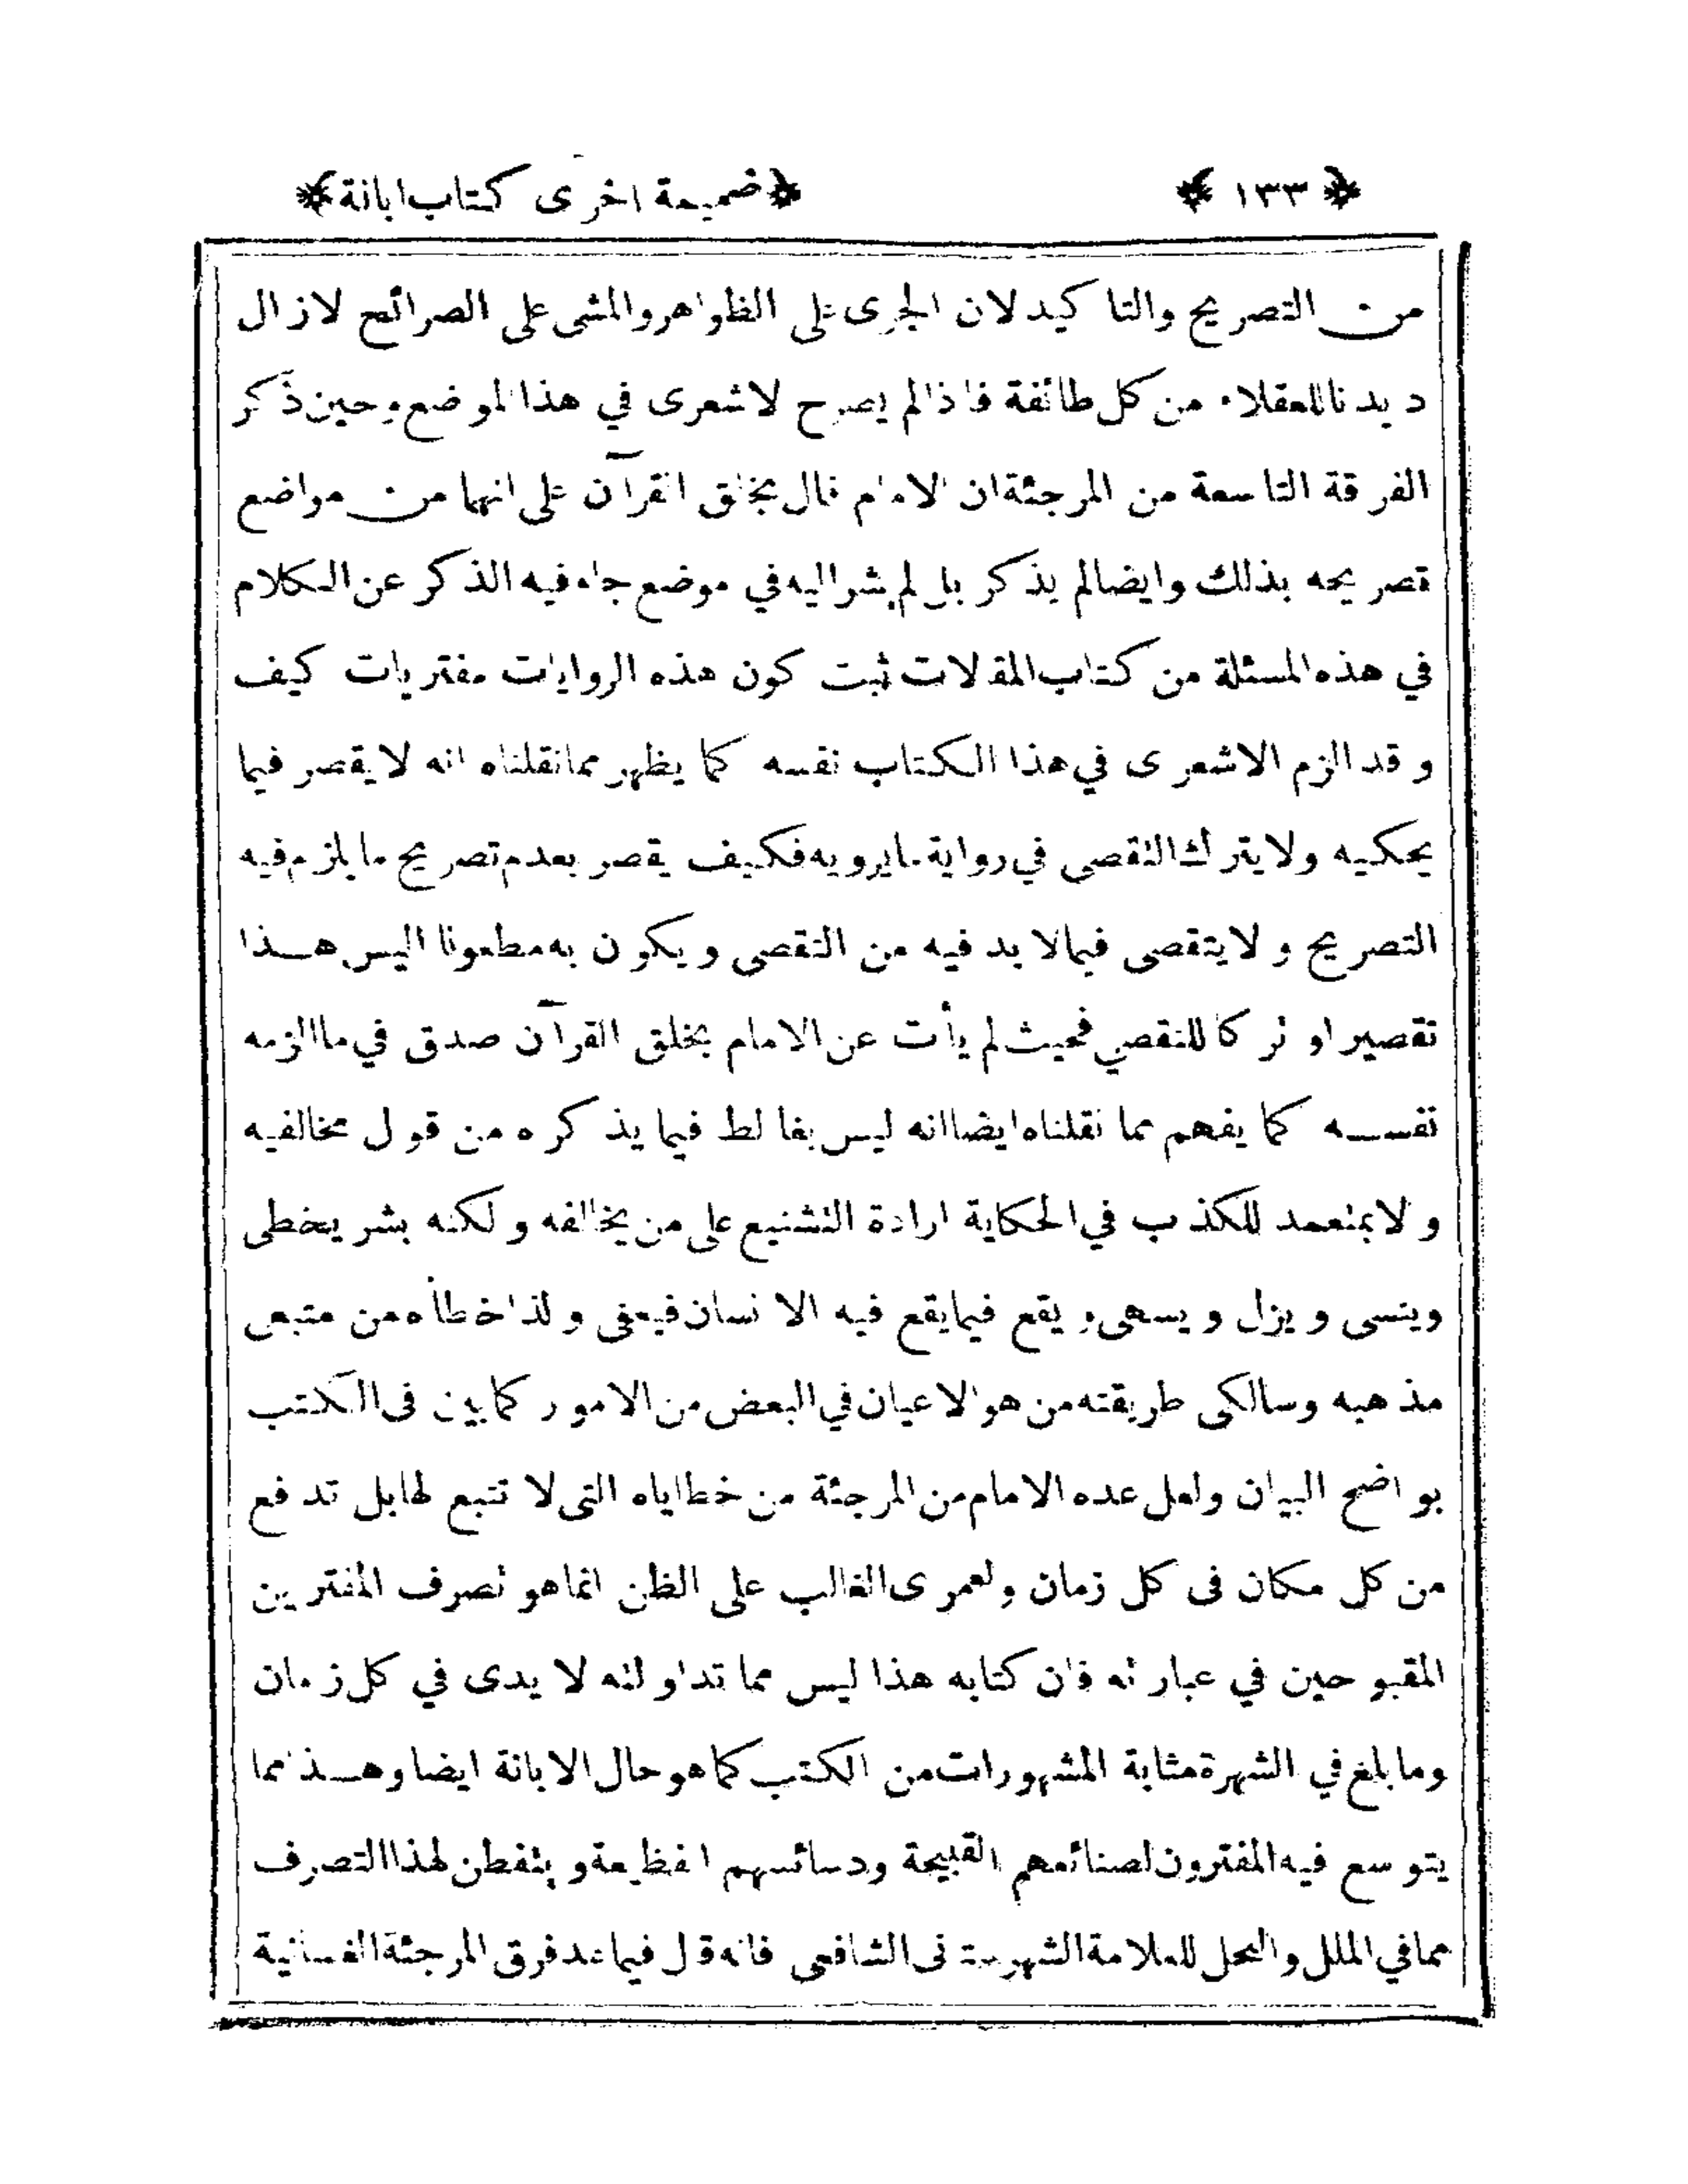 ﴿ ١٣٣ ﴾ ﴿ضميمة اخرى كتاب ابانة﴾
من التصريح والتاكيد لان الجرى على الظواهر والمشى على الصرائح لازال
ديدنا للعقلاء من كل طائفة فاذا لم يصرح الاشعرى في هذا الموضع وحين ذكر
الفرقة التاسعة من المرجئة ان الامام قال بخلق القرآن على انهما من مواضع
تصريحه بذلك وايضا لم يذكر بل لم يشر اليه في موضع جاء فيه الذكر عن الكلام
في هذه المسئلة من كتاب المقالات ثبت كون هذه الروايات مفتريات كيف
وقد الزم الاشعرى في هذا الكتاب نفسه كما يظهر مما نقلناه انه لا يقصر فيما
يحكيه ولا يترك التقصى في رواية ما يرويه فكيف يقصر بعدم تصريح ما يلزم فيه
التصريح ولا يتقصى فيما لا بد فيه من التقصى ويكون به مطعونا اليس هذا
تقصيرا او تركا للتقصي فحيث لم يأت عن الامام بخلق القرآن صدق في ما الزمه
نفسه كما يفهم مما نقلناه ايضا انه ليس بغالط فيما يذكره من قول مخالفيه
ولا بمتعمد للكذب في الحكاية ارادة التشنيع على من يخالفه ولكنه بشر يخطى
وينسى ويزل ويسهى ويقع فيما يقع فيه الانسان فيعفى ولذا خطأه من متبعى
مذهبه وسالكى طريقته من هو الاعيان في البعض من الامور كما بين فى الكتب
بواضح البيان ولعل عده الامام من المرجئة من خطاياه التى لا تتبع لها بل تدفع
من كل مكان فى كل زمان ولعمرى الغالب على الظن انما هو تصرف المفترين
المقبوحين في عبارته فان كتابه هذا ليس مما تداولته الايدى في كل زمان
وما بلغ في الشهرة مثابة المشهورات من الكتب كما هو حال الابانة ايضا وهذا مما
يتوسع فيه المفترون لصنائعهم القبيحة ودسائسهم الفظيعة ويتفطن لهذا التصرف
مما في الملل والنحل للعلامة الشهرستانى الشافعى فانه قال فيما عد فرق المرجئة الغسانية